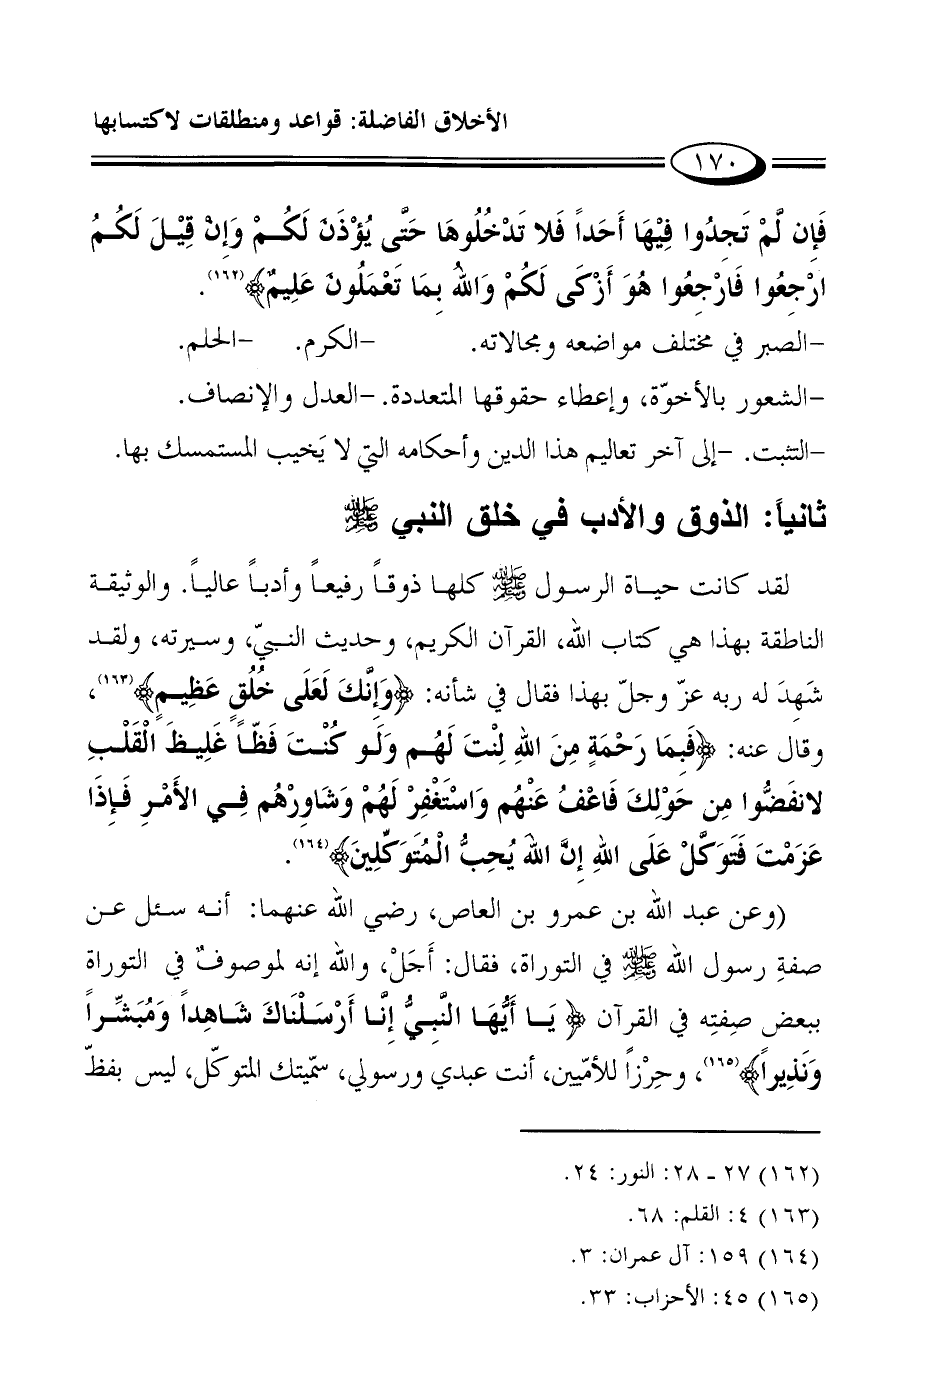 الأخلاق الفاضلة: قواعد ومنطلقات لاكتسابها
١٧٠
فَإِن لَّمْ تَجِدُوا فِيْهَا أَحَداً فَلا تَدْخُلُوهَا حَتَّى يُؤْذَنَ لَكُـمْ وَإِنْ قِيْلَ لَكُـمُ
ارْجِعُوا فَارْجِعُوا هُوَ أَزْكَى لَكُمْ وَاللهُ بِمَا تَعْمَلُونَ عَلِيمٌ﴾(١٦٢).
-الصبر في مختلف مواضعه ومجالاته. -الكرم. -الحلم.
-الشعور بالأخوّة، وإعطاء حقوقها المتعددة. -العدل والإنصاف.
-التثبت. -إلى آخر تعاليم هذا الدين وأحكامه التي لا يَخيب المستمسك بها.
ثانياً: الذوق والأدب في خلق النبي ﷺ
لقد كانت حيـاة الرسول ﷺ كلهـا ذوقـاً رفيعـاً وأدبـاً عاليـاً. والوثيقـة
الناطقة بهذا هي كتاب الله، القرآن الكريم، وحديث النبيّ، وسيرته، ولقـد
شَهِدَ له ربه عزّ وجلّ بهذا فقال في شأنه: ﴿وَإِنَّكَ لَعَلَى خُلُقٍ عَظِيـمٍ﴾(١٦٣)،
وقال عنه: ﴿فَبِمَا رَحْمَةٍ مِنَ اللهِ لِنْتَ لَهُـم وَلَـو كُنْـتَ فَظّـاً غَلِيـظَ الْقَلْـبِ
لانفَضُّوا مِن حَوْلِكَ فَاعْفُ عَنْهُم وَاسْتَغْفِرْ لَهُمْ وَشَاوِرْهُم فِـي الأَمْـرِ فَـإِذَا
عَزَمْتَ فَتَوَكَّلْ عَلَى اللهِ إِنَّ اللهَ يُحِبُّ الْمُتَوَكِّلِينَ﴾(١٦٤).
(وعن عبد الله بن عمرو بن العاص، رضي الله عنهما: أنـه سـئل عـن
صفةِ رسول الله ﷺ في التوراة، فقال: أَجَلْ، والله إنه لموصوفٌ في التوراة
ببعض صِفتِه في القرآن ﴿يَـا أَيُّهَـا النَّبِـيُّ إِنَّـا أَرْسَـلْنَاكَ شَـاهِداً وَمُبَشِّـراً
وَنَذِيراً﴾(١٦٥)، وحِرْزاً للأمّيين، أنت عبدي ورسولي، سمّيتك المتوكّل، ليس بفظّ
(١٦٢) ٢٧ ـ ٢٨: النور: ٢٤.
(١٦٣) ٤: القلم: ٦٨.
(١٦٤) ١٥٩: آل عمران: ٣.
(١٦٥) ٤٥: الأحزاب: ٣٣.